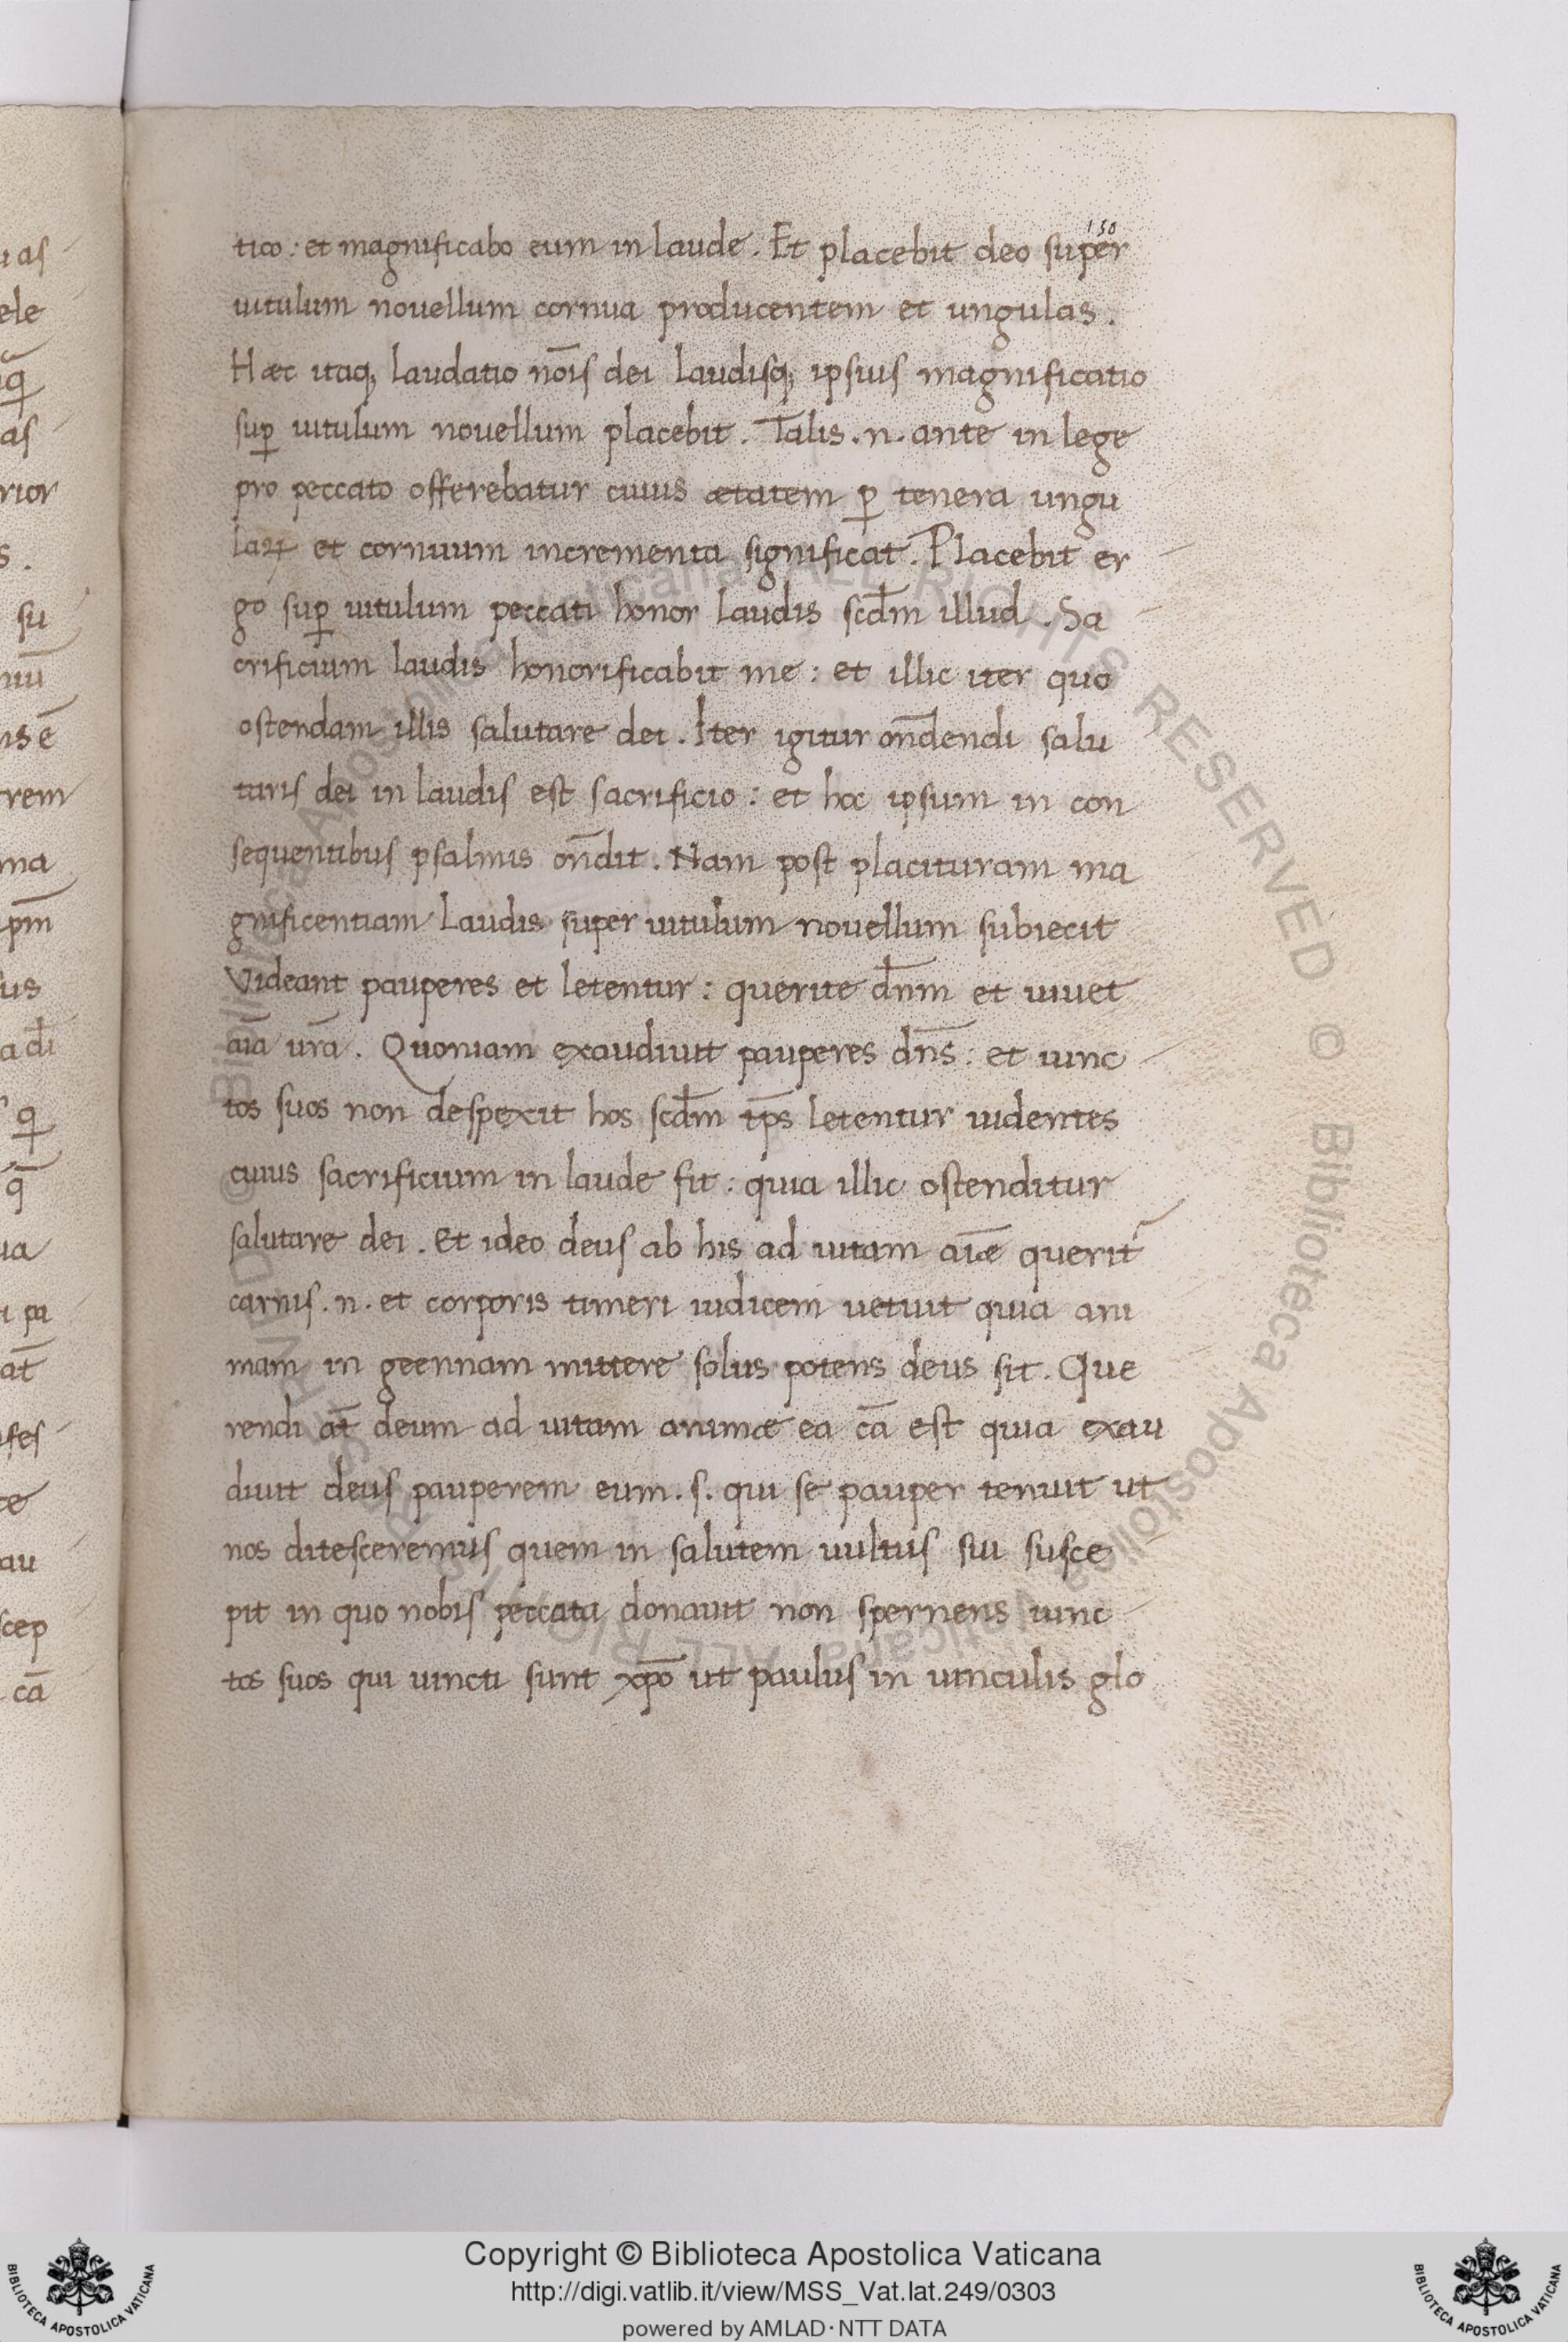 150
tico: et magnificabo eum in laude. Et placebit deo super
uitulum nouellum cornua producentem et ungulas.
Hæc itaq; laudatio nōis dei laudisq; ipsius magnificatio
suꝑ uitulum nouellum placebit. Talis .n. ante in lege
pro peccato offerebatur cuius ætatem ꝑ tenera ungu
laꝝ et cornuum incrementa significat. Placebit er
go suꝑ uitulum peccati honor laudis scd̄m illud. Sa
crificium laudis honorificabit me: et illic iter quo
ostendam illis salutare dei. Iter igitur on̄dendi salu
taris dei in laudis est sacrificio: et hoc ipsum in con
sequentibus psalmis on̄dit. Nam post placituram ma
gnificentiam laudis super uitulum nouellum subiecit
Videant pauperes et letentur: querite dn̄m et uiuet
aīa ur̄a. Quoniam exaudiuit pauperes dn̄s: et uinc
tos suos non despexit hos scd̄m tp̄s letentur uidentes
cuius sacrificium in laude fit: quia illic ostenditur
salutare dei. Et ideo deus ab his ad uitam aīæ querit᷑
carnis .n. et corporis timeri iudicem uetuit quia ani
mam in geennam mittere solus potens deus sit. Que
rendi at̄ deum ad uitam animæ ea cā est quia exau
diuit deus pauperem eum .s. qui se pauper tenuit ut
nos ditesceremus quem in salutem uultus sui susce
pit in quo nobis peccata donauit non spernens uinc
tos suos qui uincti sunt xp̄o ut paulus in uinculis glo
Copyright © Biblioteca Apostolica Vaticana
http://digi.vatlib.it/view/MSS_Vat.lat.249/0303
powered by AMLAD·NTT DATA